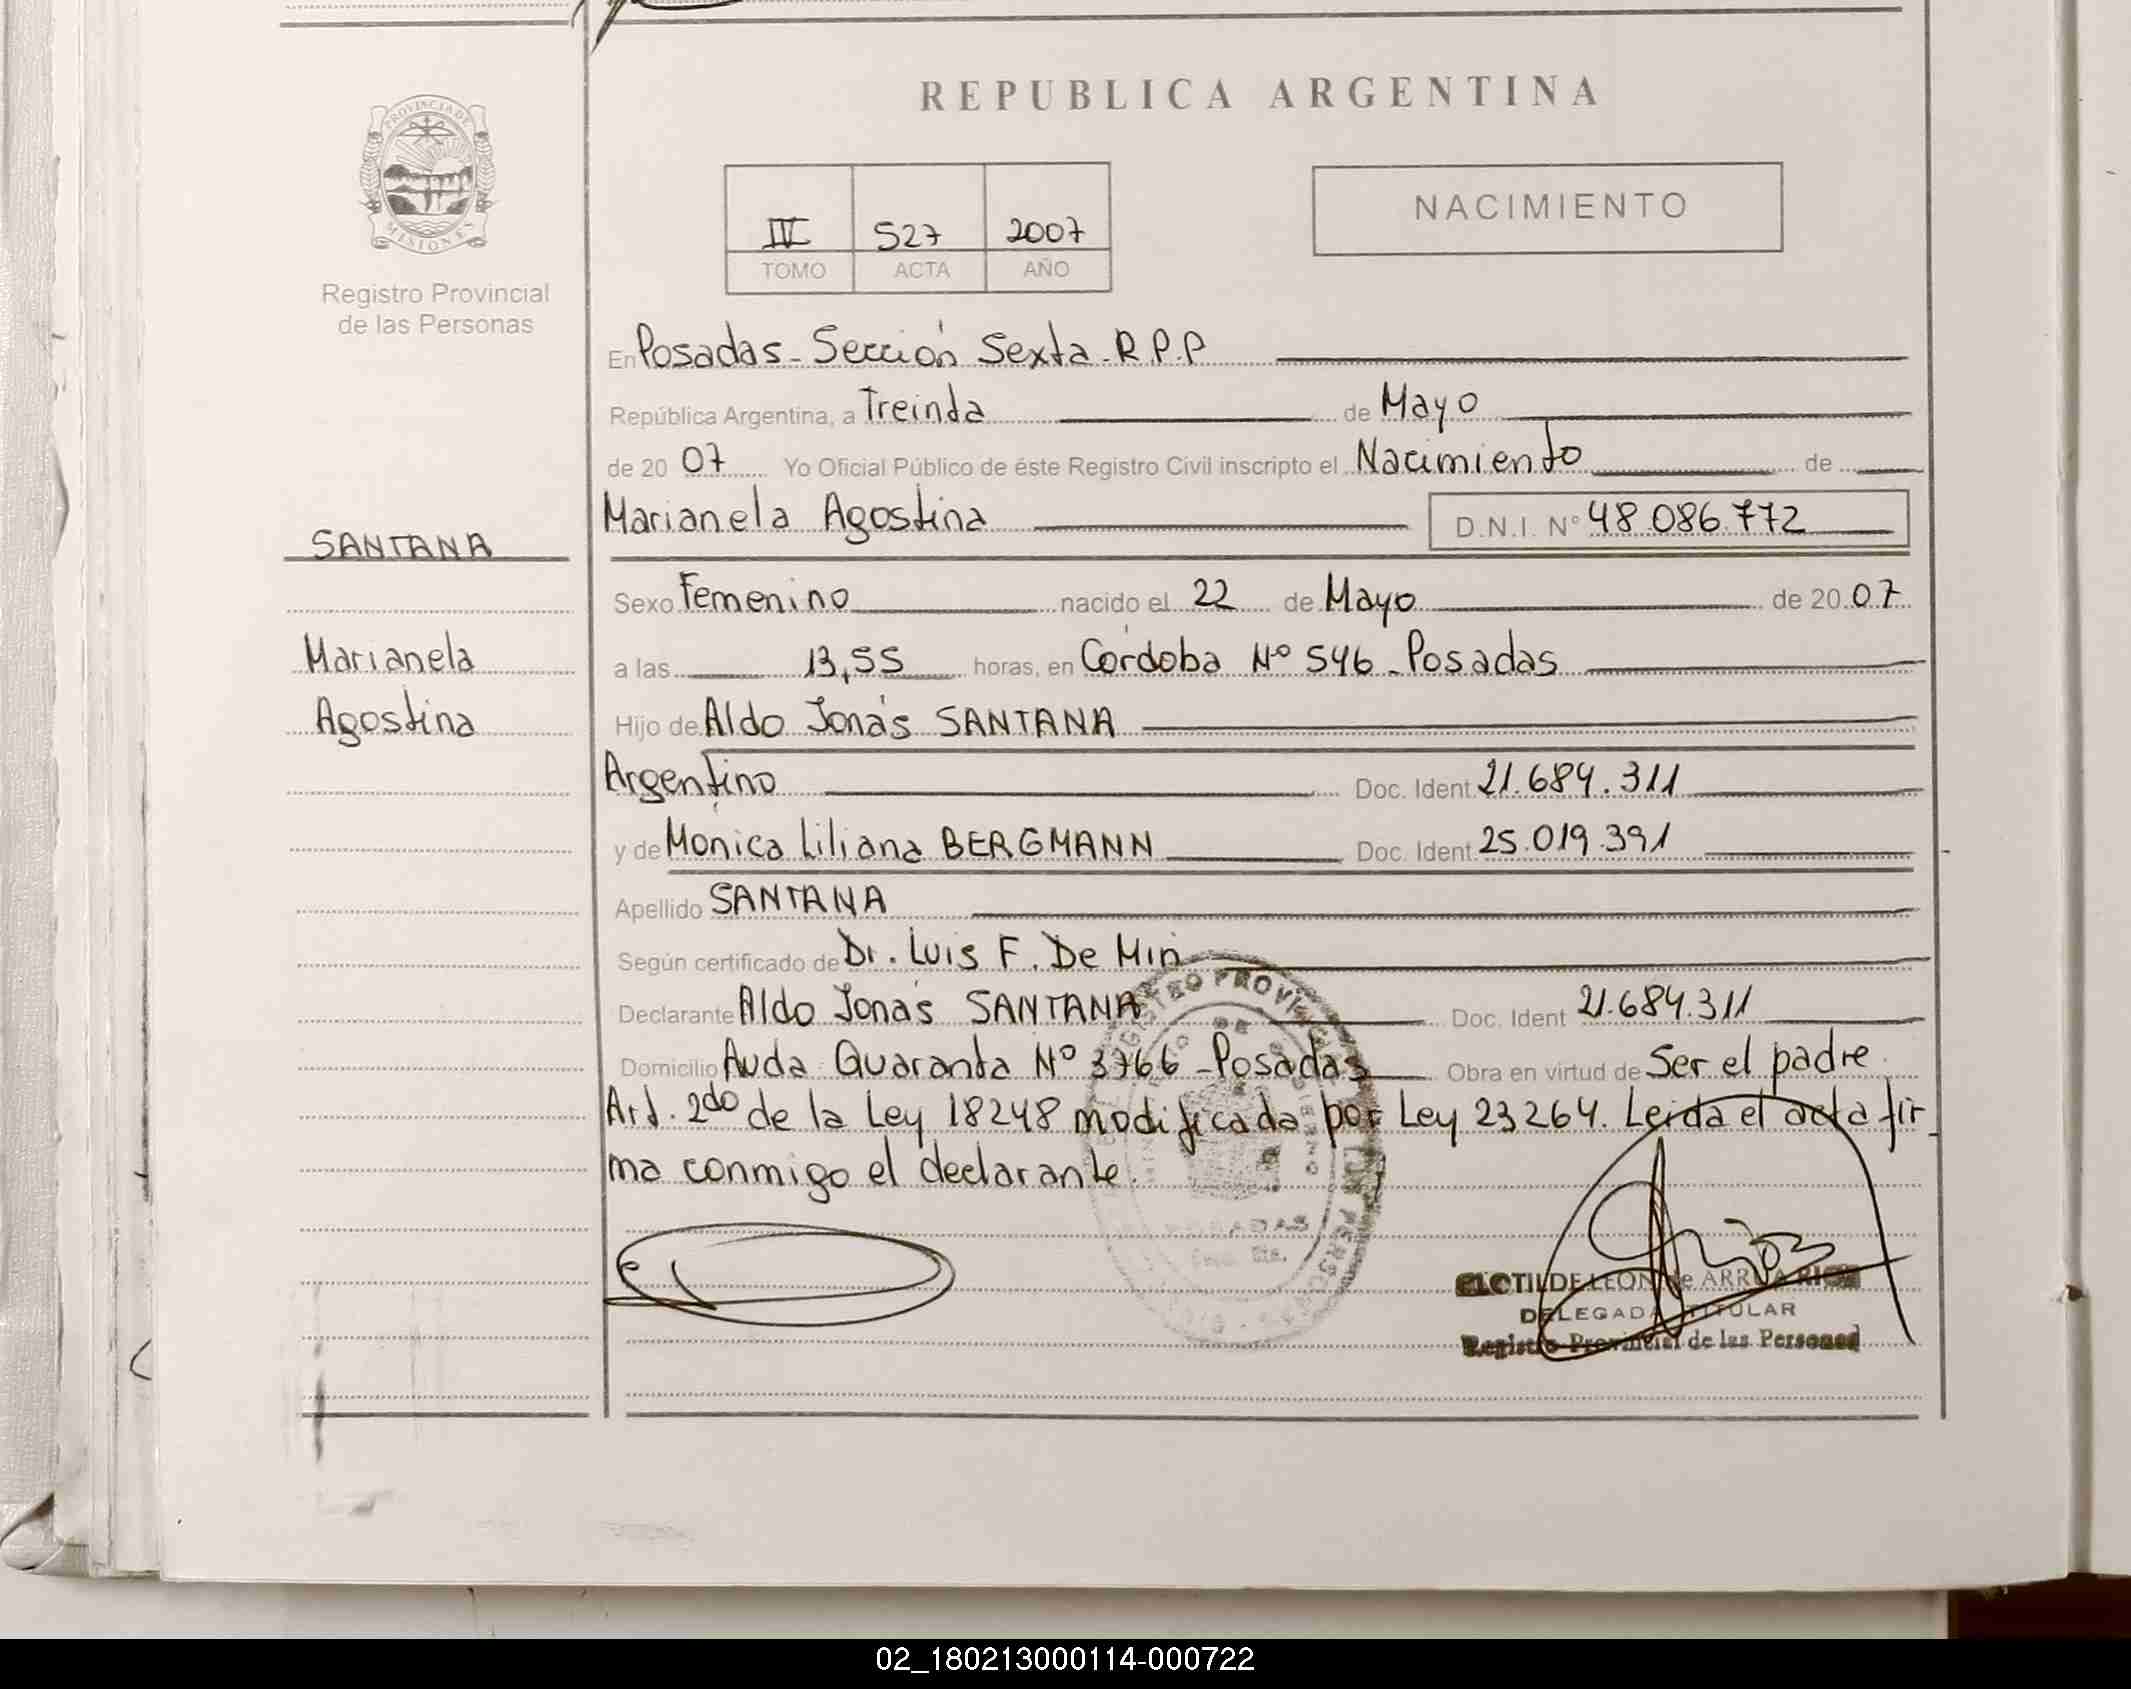 REPUBLICA ARGENTINA
PROVINCIA DE
MISIONES
Registro Provincial
de las Personas
IV 527 2007
TOMO ACTA AÑO
NACIMIENTO
En Posadas - Sección Sexta - R.P.P
República Argentina, a Treinta de Mayo
de 20 07 Yo Oficial Público de éste Registro Civil inscripto el Nacimiento de
Marianela Agostina D.N.I. N° 48.086.772
SANTANA
Sexo Femenino nacido el 22 de Mayo de 20 07
Marianela
a las 13,55 horas, en Córdoba Nº 546 - Posadas
Agostina
Hijo de Aldo Jonás SANTANA
Argentino Doc. Ident. 21.684.311
y de Monica Liliana BERGMANN Doc. Ident. 25.019.391
Apellido SANTANA
Según certificado de Dr. Luis F. De Min
Declarante Aldo Jonás SANTANA Doc. Ident 21.684.311
Domicilio Avda Quaranta Nº 3766 - Posadas Obra en virtud de Ser el padre.
Art. 2do de la Ley 18248 modificada por Ley 23264. Leida el acta fir
ma conmigo el declarante.
POSADAS
CLOTILDE LEON de ARRUA RIOS
DELEGADA TITULAR
Registro Provincial de las Personas
02_180213000114-000722